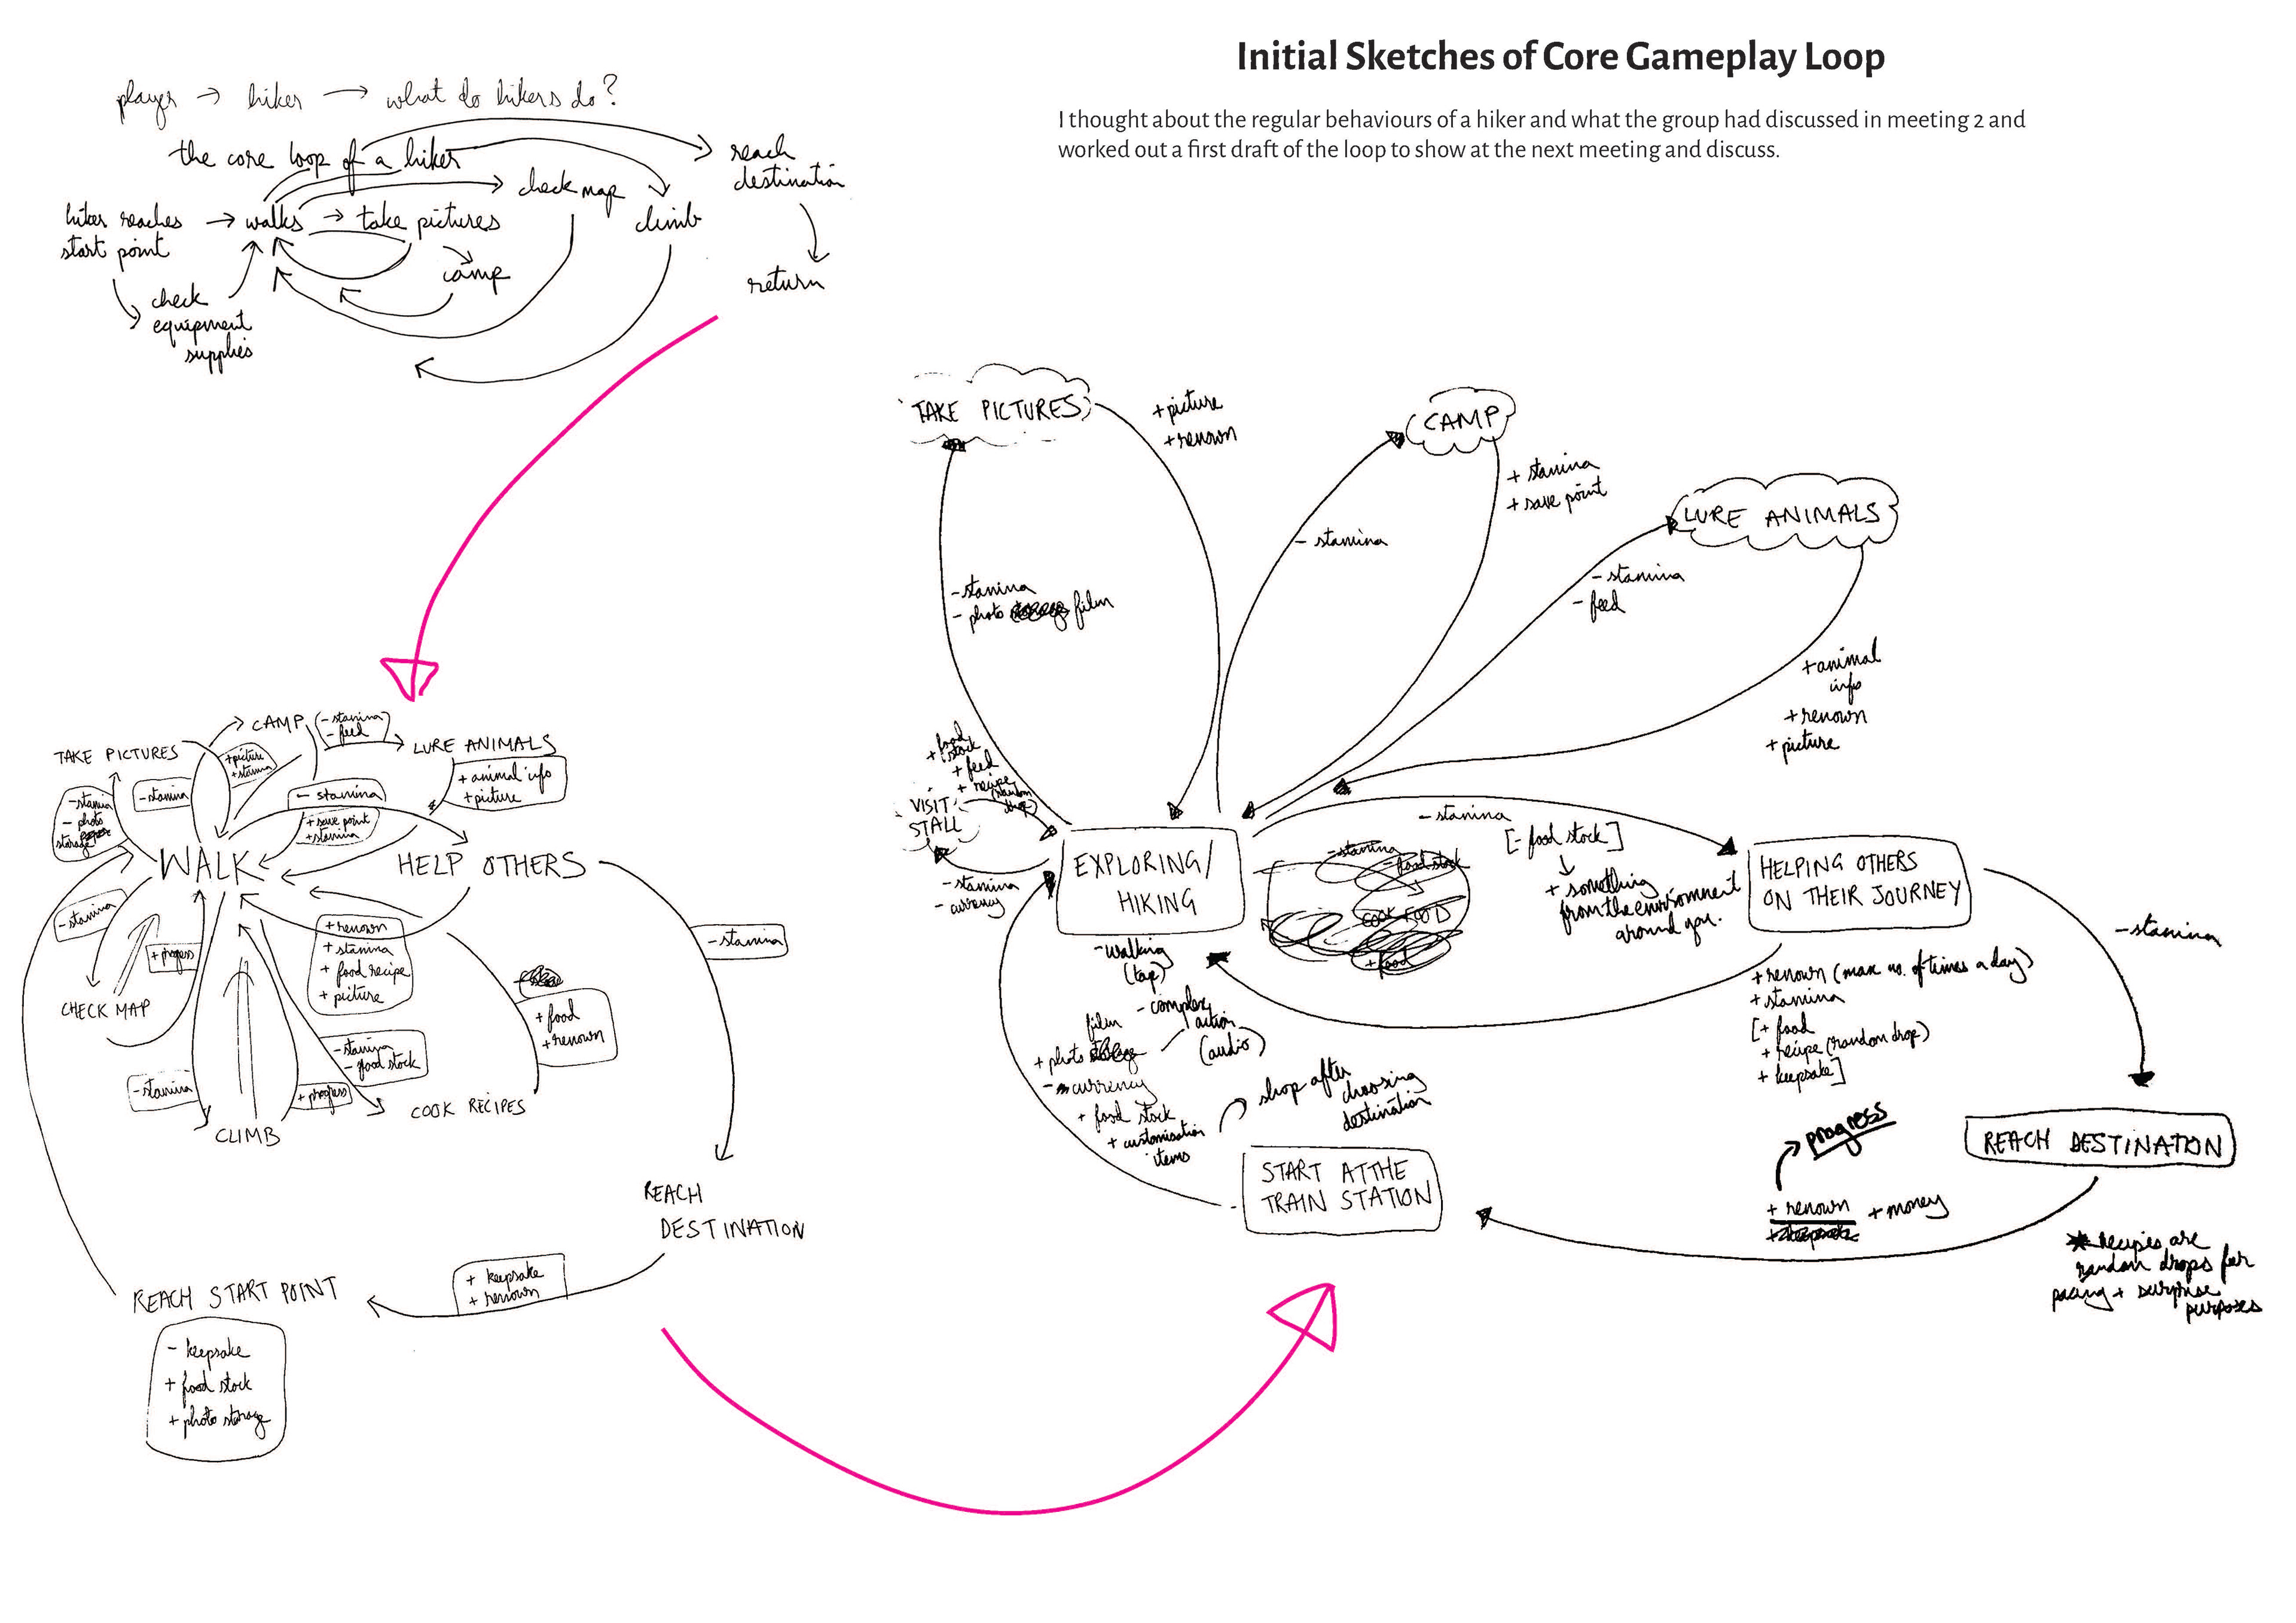 Initial Sketches of Core Gameplay Loop
I thought about the regular behaviours of a hiker and what the group had discussed in meeting 2 and
worked out a first draft of the loop to show at the next meeting and discuss.
player → hiker → what do hikers do?
the core loop of a hiker
reach
destination
return
check map
climb
hiker reaches → walks → take pictures
start point
camp
check
equipment
supplies
TAKE PICTURES
CAMP
- stamina
- feed
LURE ANIMALS
+ animal info
+ picture
+ picture
+ stamina
- stamina
- stamina
- photo
storage
- stamina
+ save point
+ stamina
WALK
HELP OTHERS
- stamina
+ progress
+ renown
+ stamina
+ food recipe
+ picture
- stamina
CHECK MAP
+ food
+ renown
- stamina
- food stock
- stamina
+ progress
CLIMB
COOK RECIPES
REACH
DESTINATION
+ keepsake
+ renown
REACH START POINT
- keepsake
+ food stock
+ photo storage
TAKE PICTURES
+ picture
+ renown
- stamina
- photo film
CAMP
- stamina
+ stamina
+ save point
LURE ANIMALS
- stamina
- feed
+ animal
info
+ renown
+ picture
+ food
stock
+ feed
+ recipe
(random
drop)
VISIT
STALL
- stamina
- currency
EXPLORING/
HIKING
- walking
(tap)
- complex
action
(audio)
- stamina
- food stock
COOK FOOD
+ food
- stamina
[- food stock]
↓
+ something
from the environment
around you.
HELPING OTHERS
ON THEIR JOURNEY
- stamina
+ renown (max no. of times a day)
+ stamina
[+ food
+ recipe (random drop)
+ keepsake]
film
+ photo
- currency
+ food stock
+ customisation
items
shop after
choosing
destination
START AT THE
TRAIN STATION
REACH DESTINATION
progress
+ renown + money
* recipes are
random drops for
pacing + surprise
purposes